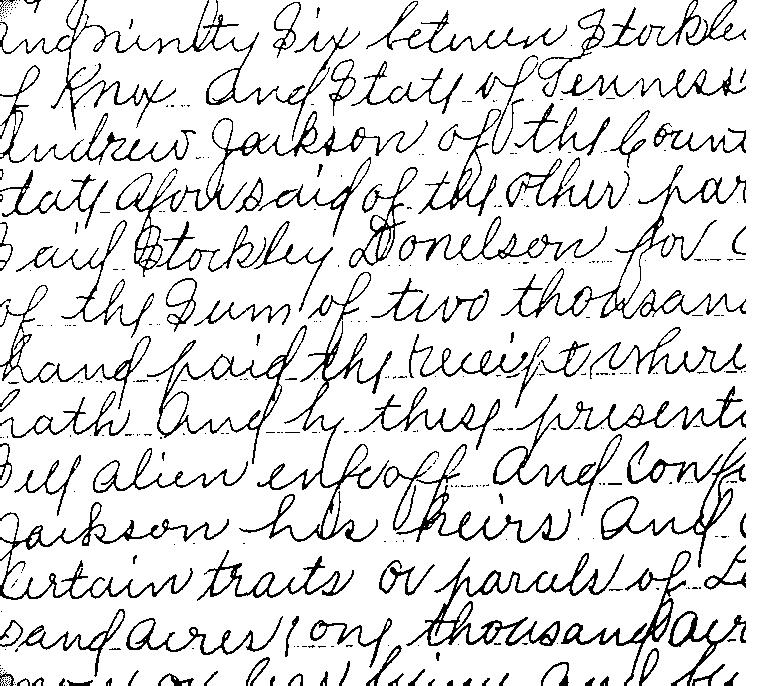 and ninty Six between Stockle
of Knox and State of Tenness
Andrew Jackson of the Count
State aforesaid of the other par
Said Stockley Donelson for
of the Sum of two thousand
hand paid the receipt where
hath and by these present
Sell alien enfeoff and Conf
Jackson his heirs and
Certain tracts or parcels of La
sand acres one thousand acr
more or less being and by